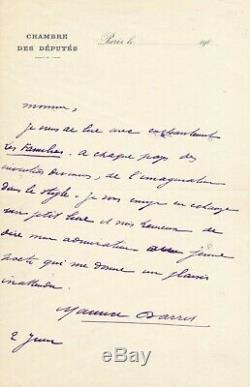 CHAMBRE
DES DÉPUTÉS
Paris, le 191
Monsieur,
je viens de lire avec enchantement
Les Familiers. à chaque page des
inventions divines, de l'imagination
dans le style. je vous envoie en échange
un petit livre et mis heureux de
dire mon admiration au jeune
poète qui me donne un plaisir
inattendu.
Maurice Barrès
2 Juin